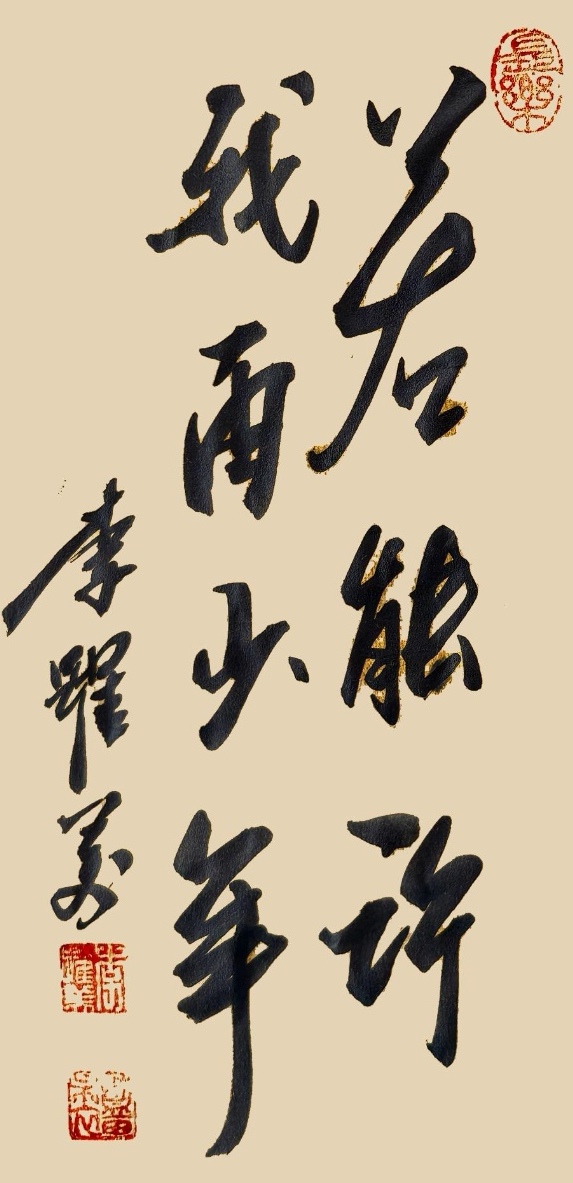 若能许
我再少年
李躍